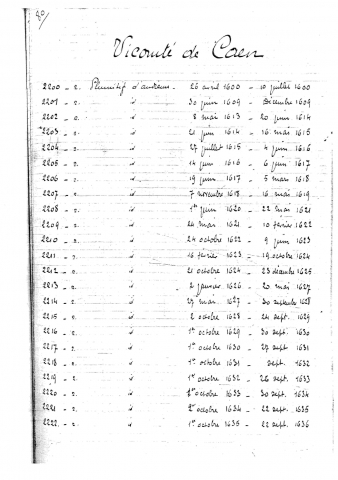 80/
Vicomté de Caen
2200 - r. Plumitif d'audience 26 avril 1600 - 10 juillet 1600
2201 - r. id 30 juin 1609 Décembre 1609
2202 - r. id 8 mai 1613 - 20 juin 1614
2203 - r. id 21 juin 1614 - 16 mai 1615
2204 - r. id 27 juillet 1615 - 4 juin 1616
2205 - r. id 14 juin 1616 - 6 juin 1617
2206 - r. id 19 juin 1617 - 5 mars 1618
2207 - r. id 7 novembre 1618 - 16 mai 1619
2208 - r. id 1er juin 1620 - 22 mai 1621
2209 - r. id 24 mai 1621 - 10 février 1622
2210 - r. id 24 octobre 1622 - 9 juin 1623
2211 - r. id 16 février 1623 - 19 octobre 1624
2212 - r. id 21 octobre 1624 - 23 décembre 1625
2213 - r. id 2 janvier 1626 - 20 mai 1627
2214 - r. id 27 mai 1627 - 30 septembre 1628
2215 - r. id 2 octobre 1628 - 24 sept. 1629
2216 - r. id 1er octobre 1629 - 30 sept. 1630
2217 - r. id 1er octobre 1630 - 27 sept. 1631
2218 - r. id 1er octobre 1631 - sept. 1632
2219 - r. id 1er octobre 1632 - 26 sept. 1633
2220 - r. id octobre 1633 - 30 sept. 1634
2221 - r. id octobre 1634 - 22 sept. 1635
2222 - r. id 1er octobre 1635 - 22 sept. 1636